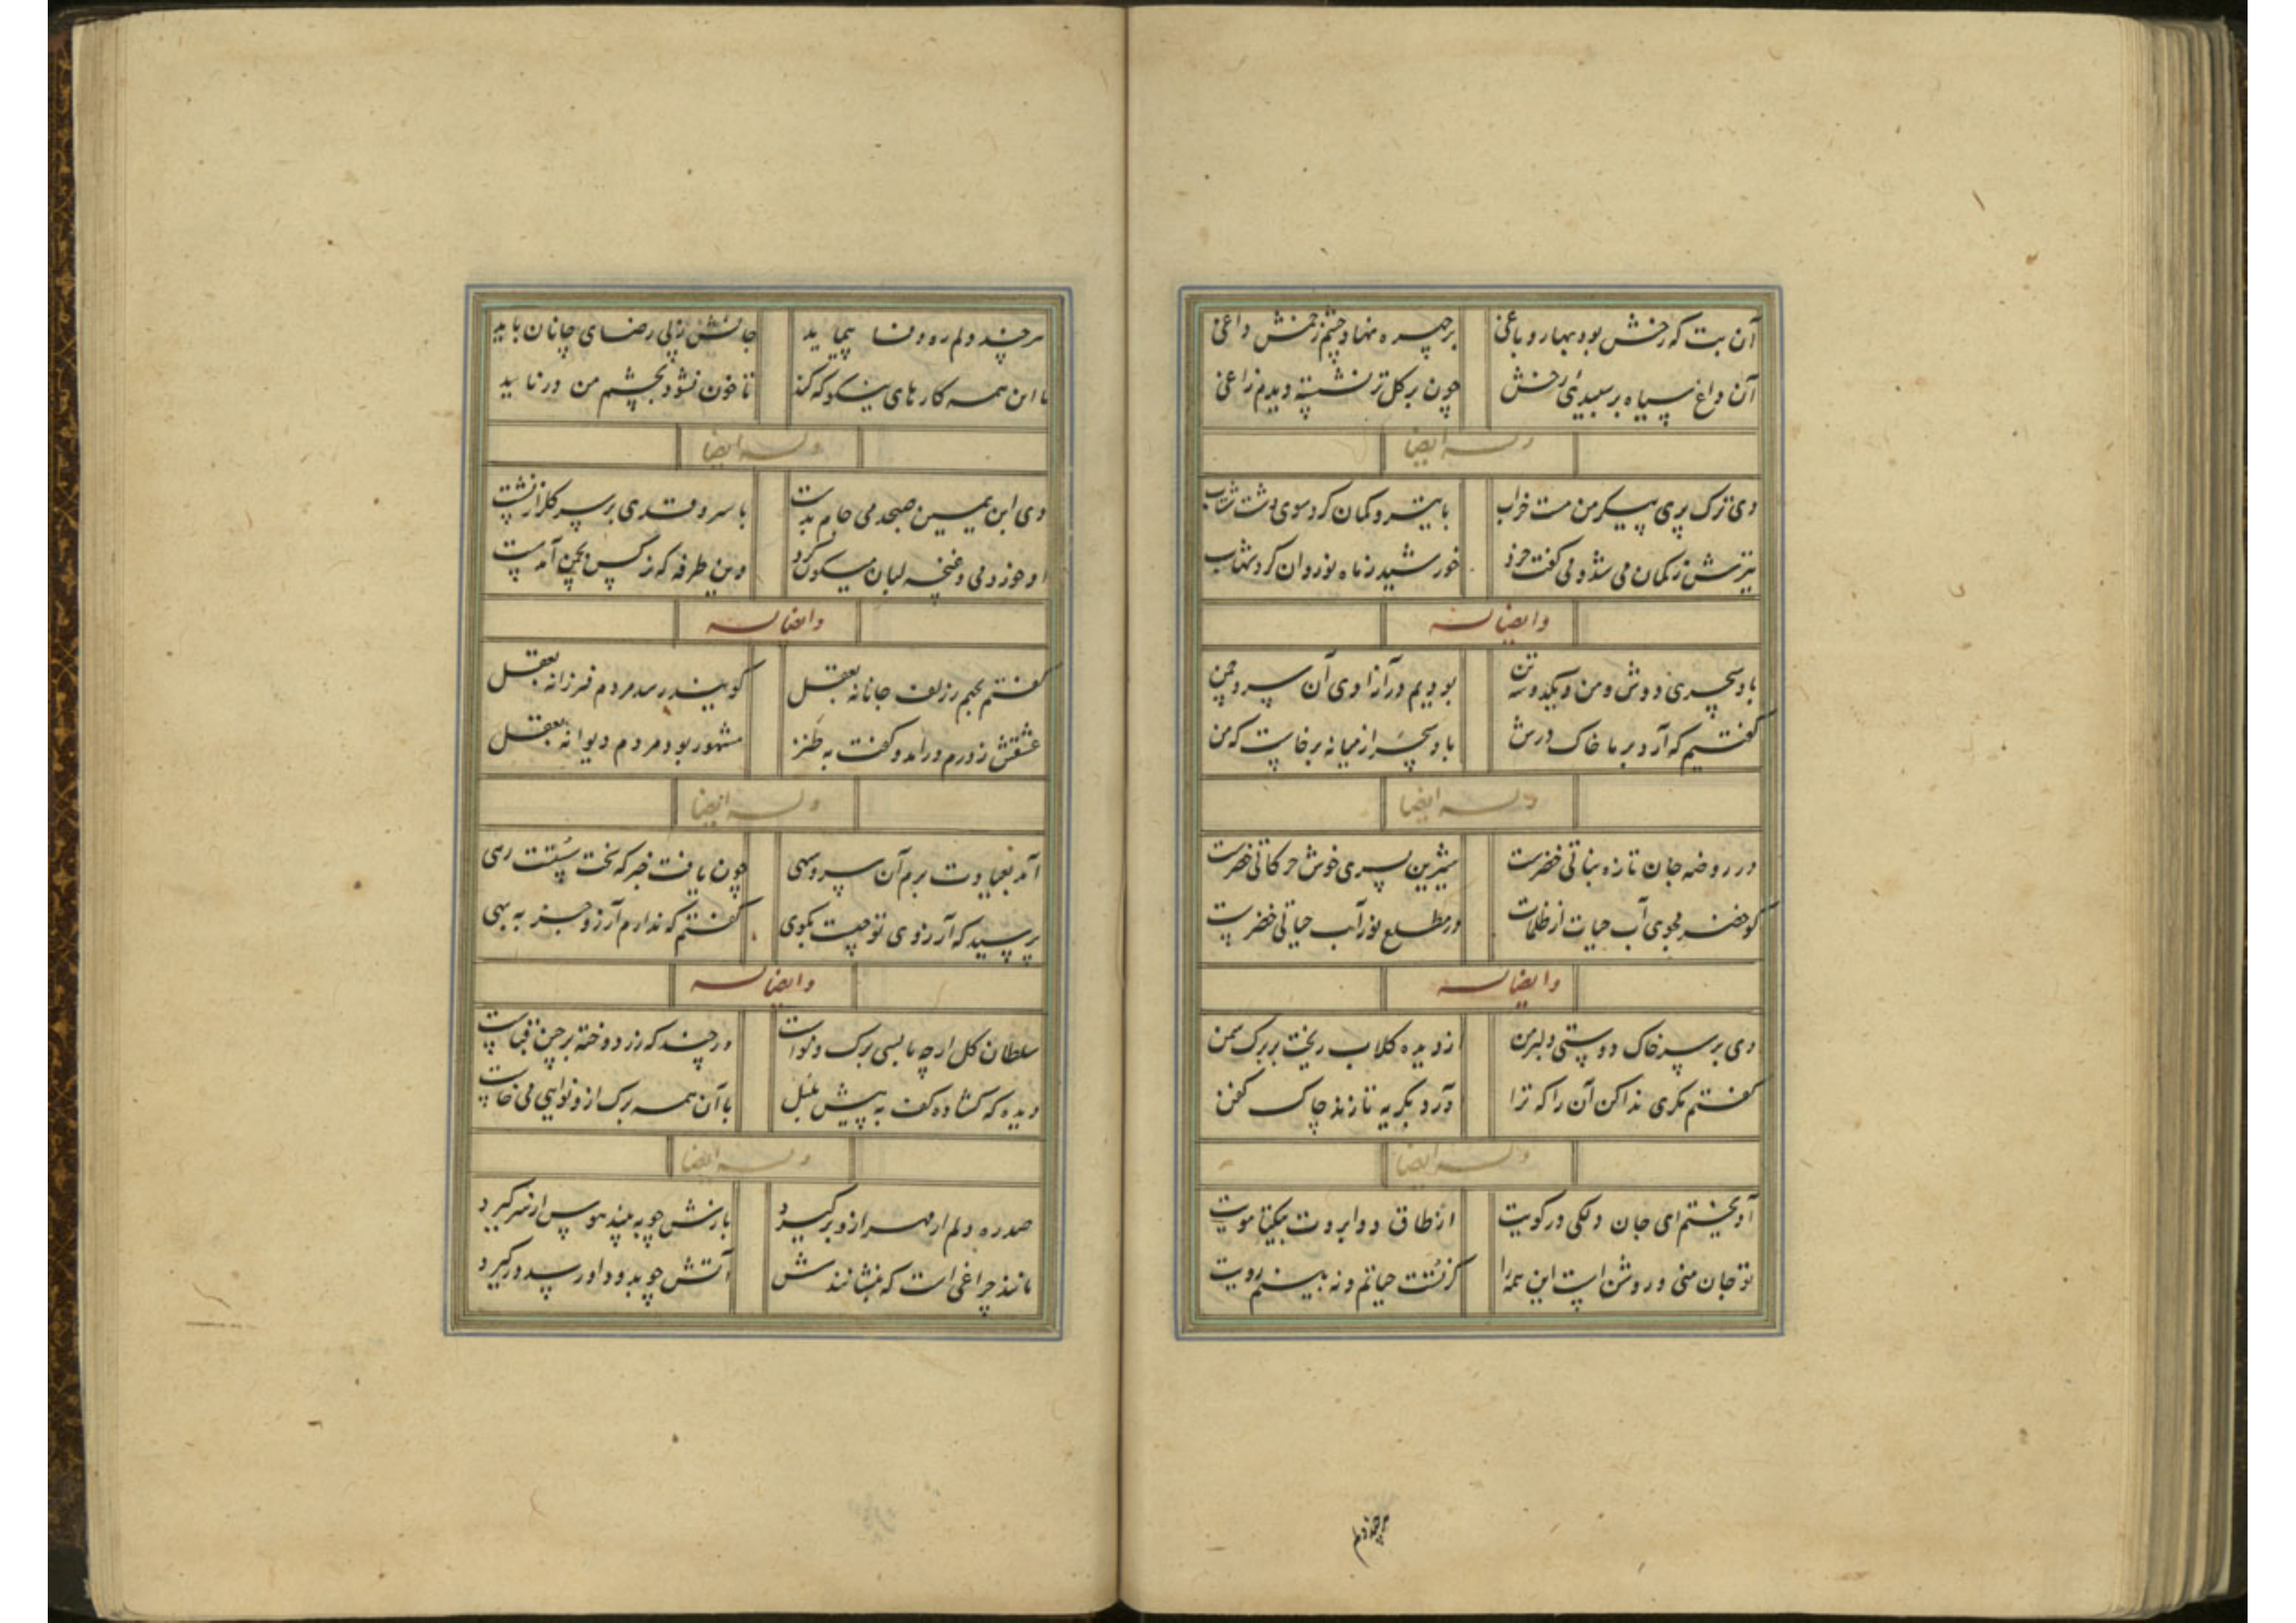 آن بت که رخش بود بهار و باغی بر چهره نهاد چشم زخمش داغی
آن داغ سیاه بر سپیدی رخش چون بر کل تر نشسته دیدم زاغی
وله ایضا
دی ترک پری پیکر من مست خراب با تیر و کمان کرد سوی دشت شتاب
تیرش ز کمان می شد و می گفت خرد خورشید ز ماه نو روان کرد شهاب
وایضا له
باد سحری دوش و من و یکدو سه تن بودیم در آزادی آن سرو چمن
گفتیم که آرد بر ما خاک درش باد سحر از میانه برخاست که من
وله ایضا
در روضه جان تازه نباتی خضرست شیرین پسری خوش حرکاتی خضرست
کو خضر مجوی آب حیات از ظلمات در مطلع نور آب حیاتی خضرست
وایضا له
دی بر سر خاک دوستی دلبر من از دیده کلاب ریخت بر برک سمن
گفتم مکری ندا کن آن را که ترا آرد بکریه تا زند چاک کفن
وله ایضا
آویختم ای جان دلکی در کویت از طاق دو ابروت بیکتا مویت
تو جان منی و روشن است این همه را کز تست حیاتم و نه بینم رویت
هر چند دلم
هر چند دلم ره وفا پیماید جانش ز پی رضای جانان باید
با این همه کارهای نیکو که کند تا خون نشود بچشم من در ناید
وله ایضا
دی ابن یمین صبحدمی جام بدست با سرو قدی بر سر کلزار نشست
او خورد می و غنچه لبان میکون کرد وین طرفه که نرکس بچمن آمد مست
وایضا له
گفتم بجهم ز زلف جانانه بعقل کویند رسد مردم فرزانه بعقل
عشقش ز درم درآمد و گفت به طنز مشهور بود مردم دیوانه بعقل
وله ایضا
آمد بعیادت برم آن سرو سهی چون یافت خبر که سخت سست رهی
پرسید که آرزوی تو چیست بکوی گفتم که ندارم آرزو جز به بهی
وایضا له
سلطان کل ار چه با بسی برک و نواست ور چند که زر دوخته بر چین قباست
دیده که کشاده کف به پیش بلبل با آن همه برک ازو نوایی می خاست
وله ایضا
صد ره دلم ار مهر ازو برگیرد بازش چو به بیند هوس از سر گیرد
مانند چراغی است که بنشانندش آتش چو بدود او رسد در گیرد